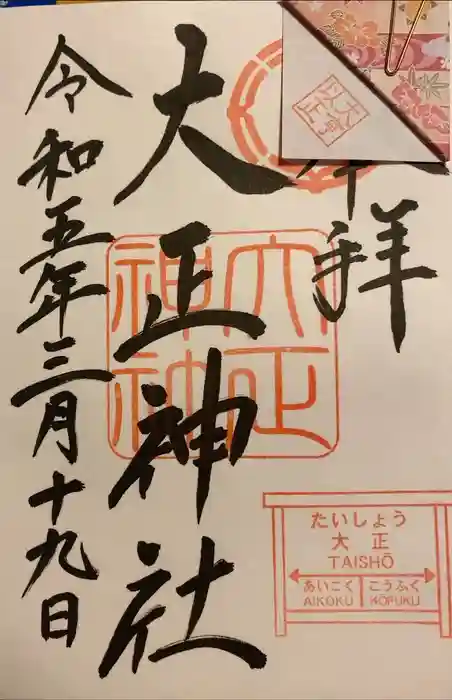 拝
大正神社
令和五年三月十九日
大正
神社
たいしょう
大正
TAISHŌ
あいこく こうふく
AIKOKU KŌFUKU